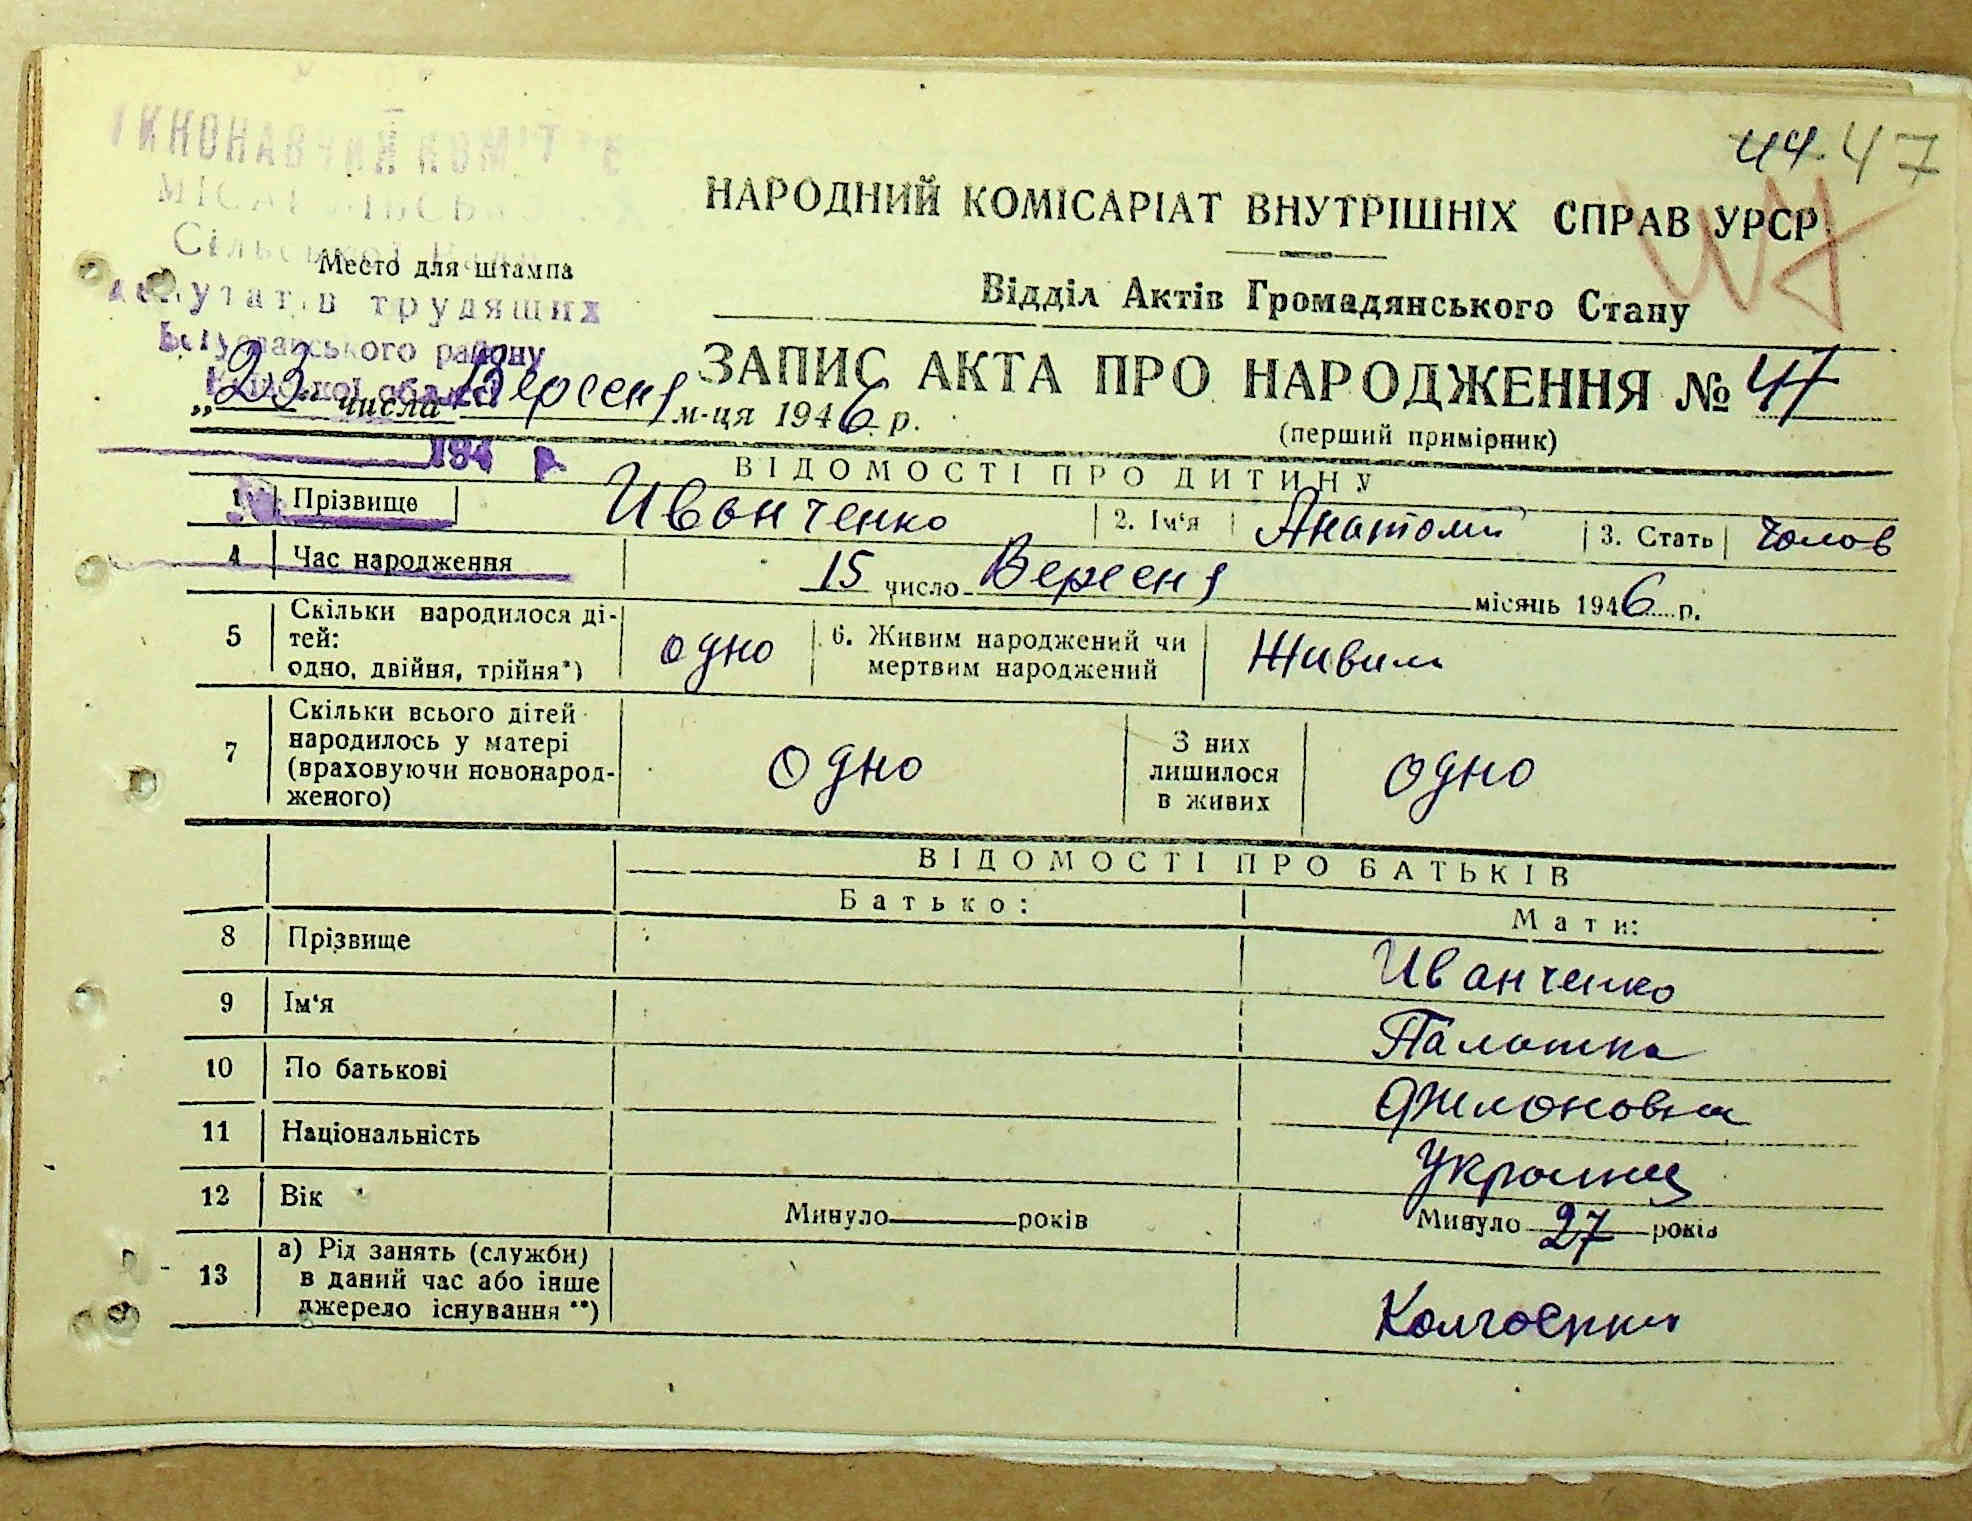 44 47
НАРОДНИЙ КОМІСАРІАТ ВНУТРІШНІХ СПРАВ УРСР
Сільської Ради
Место для штампа
депутатів трудящих
Відділ Актів Громадянського Стану
Богуславського району
Київської області
ЗАПИС АКТА ПРО НАРОДЖЕННЯ № 47
„23“ числа Вересня м-ця 1946 р.
(перший примірник)
194 р.
ВІДОМОСТІ ПРО ДИТИНУ
1 Прізвище Иванченко 2. Ім'я Анатолий 3. Стать Чолов
4 Час народження 15 число Вересня місяць 1946 р.
5 Скільки народилося ді-
тей:
одно, двійня, трійня*) одно 6. Живим народжений чи
мертвим народжений Живим
7 Скільки всього дітей
народилось у матері
(враховуючи новонарод-
женого) одно З них
лишилося
в живих одно
ВІДОМОСТІ ПРО БАТЬКІВ
Батько: Мати:
8 Прізвище Иванченко
9 Ім'я Палашка
10 По батькові
11 Національність Украинц
12 Вік Минуло років Минуло 27 років
13 а) Рід занять (служби)
в даний час або інше
джерело існування **)